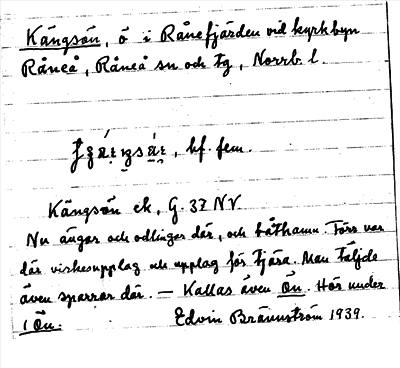 Kängsön, ö i Rånefjärden vid kyrkbyn
Råneå, Råneå sn och tg, Norrb. l.
bf. fem.
Kängsön ek, G. 37 NV
Nu ängar och odlingar där, och båthamn. Förr var
där virkesupplag och upplag för tjära. Man täljde
även sparrar där. — Kallas även Ön. Hör under
1 Ön.
Edvin Brännström 1939.